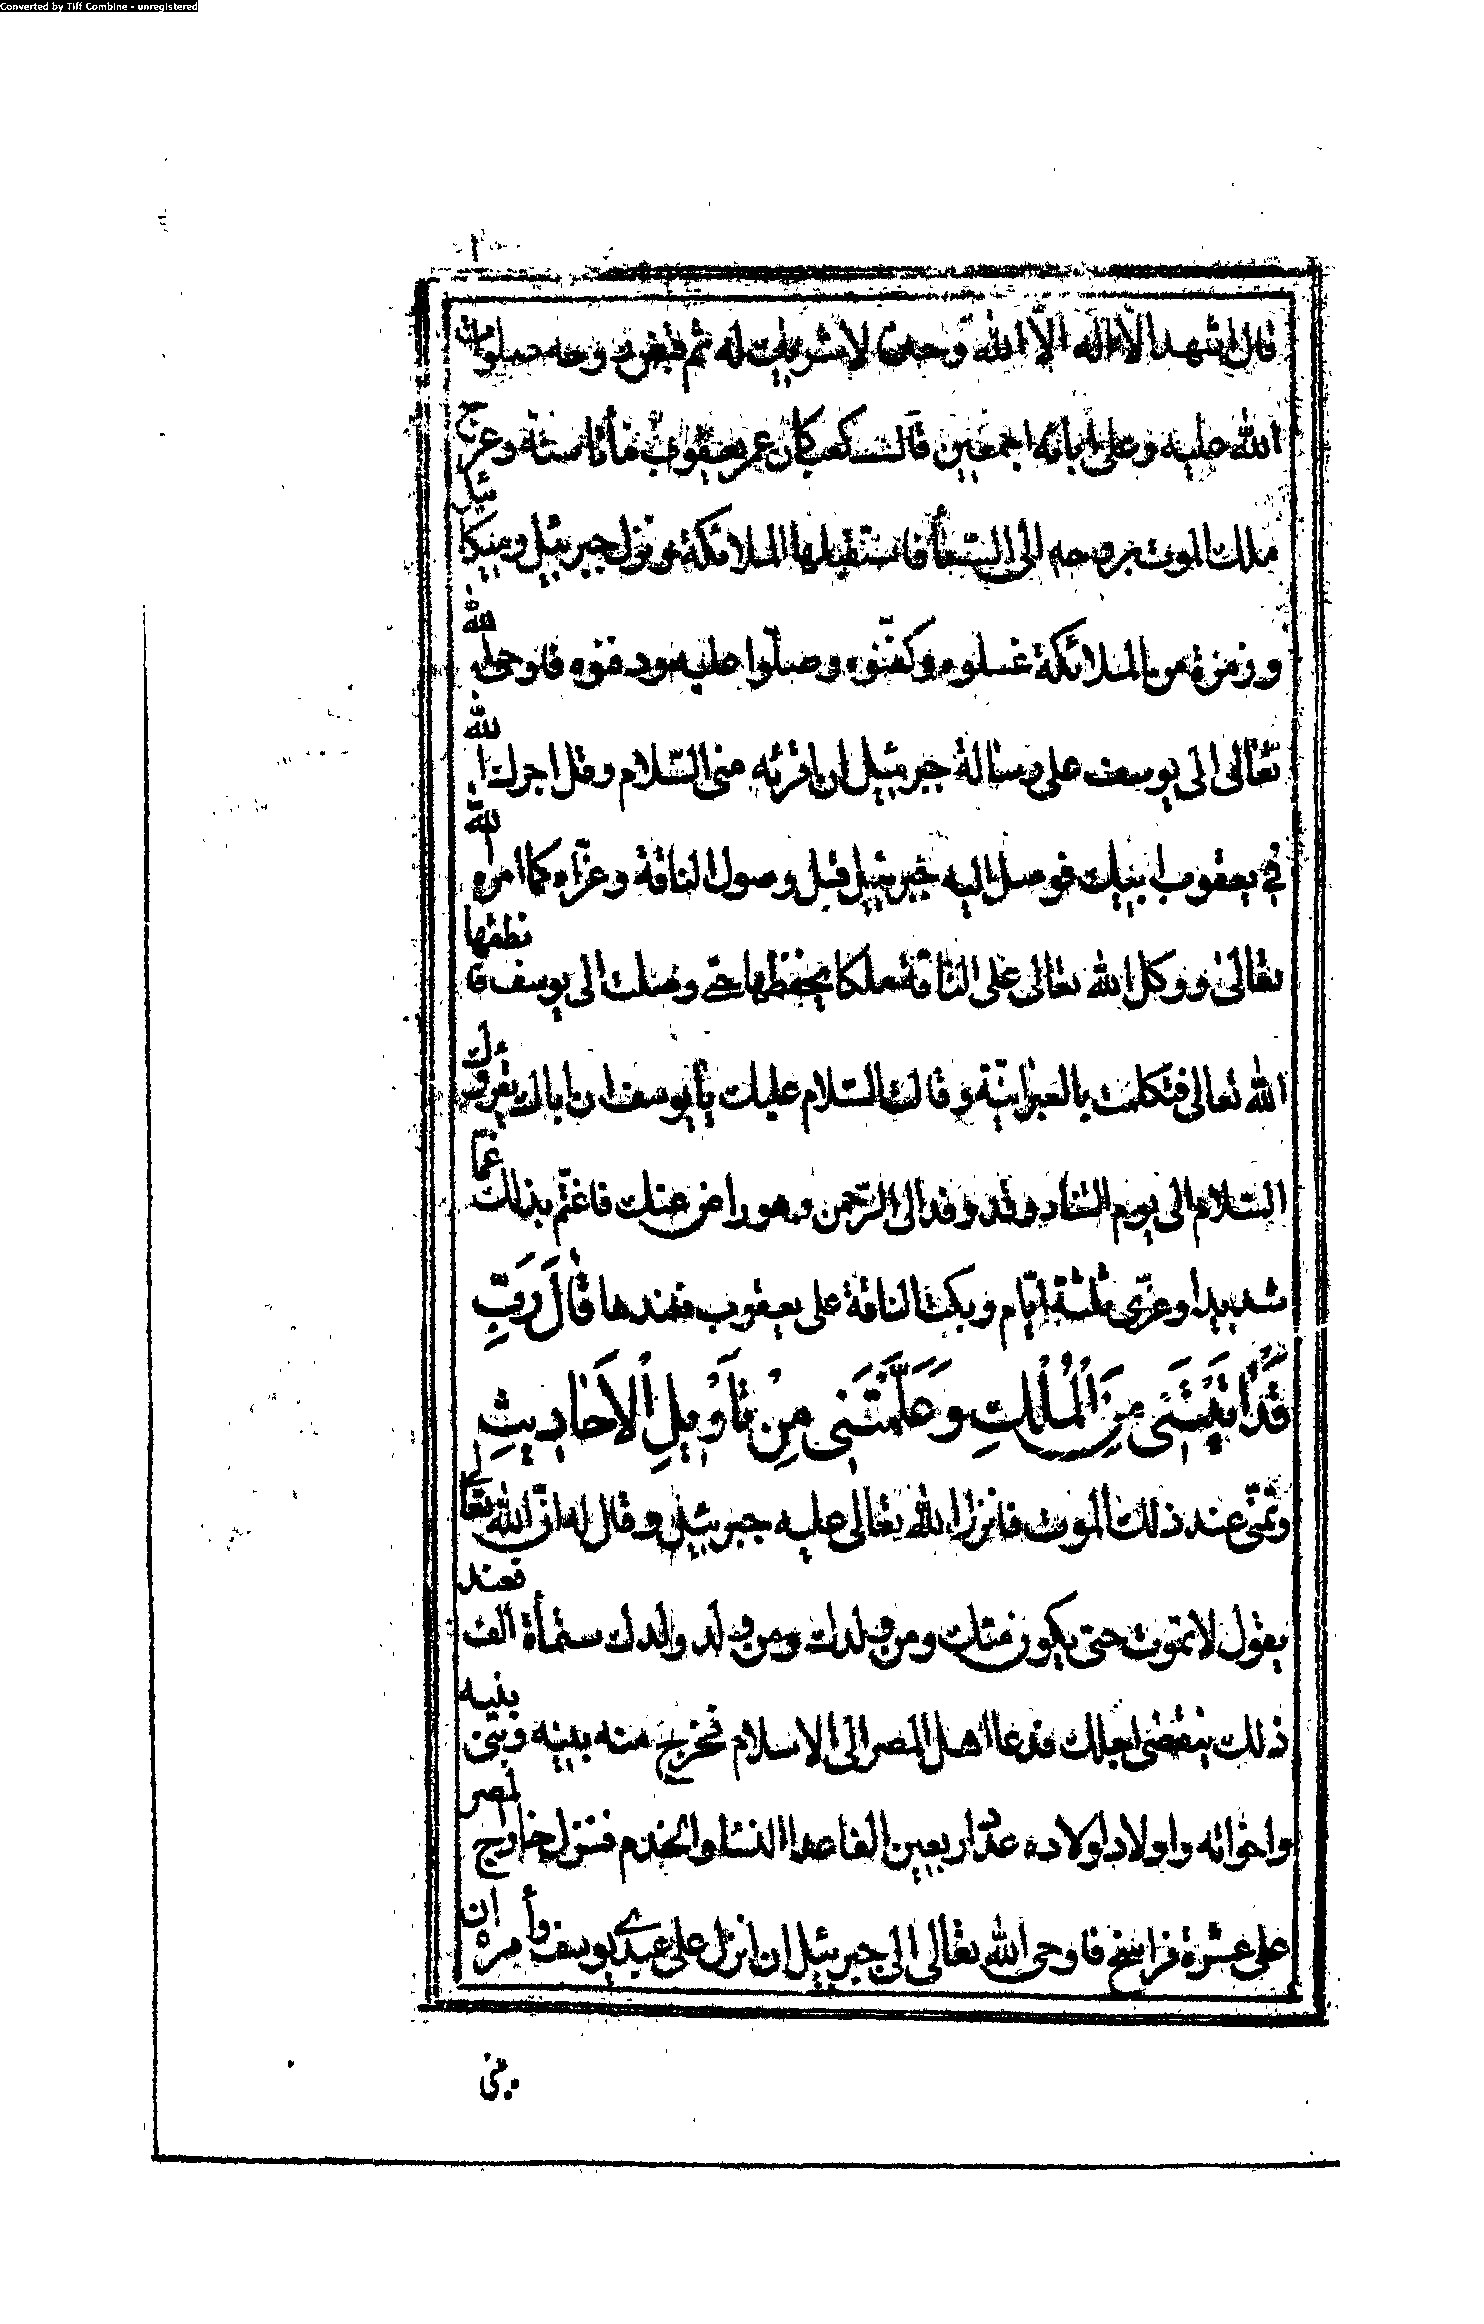 Converted by Tiff Combine - unregistered
قال اشهد الّا اله الّا الله وحده لا شريك له ثم قبض روحه صلوات
الله عليه وعلى ابائه اجمعين قالت كعب كان عمر يعقوب مأتا سنة وعرج
ملك الموت بروحه الى السّمأ فاستقبلها الملائكة ونزل جبرئيل وميكائيل
وزمرة من الملائكة غسلوه وكفّنوه وصلّوا عليه ودفنوه فاوحى الله
تعالى الى يوسف على رسالة جبرئيل ان اقرئه منى السّلام وقل اجرك الله
في يعقوب ابنيك فوصل اليه جبرئيل قبل وصول الناقة وعزّاه كما امره الله
تعالى ووكل الله تعالى على الناقة ملكا يحفظها حتى وصلت الى يوسف فانطقها
الله تعالى فتكلمت بالعبرانيّة وقالت السّلام عليك يأيوسف ان اباك يقرؤك
السّلام الى يوم التناد وقد وفد الى الرّحمن وهو راض عنك فاغتم بذلك غمّا
شديدا وعزى ثلثة ايّام وبكت الناقة على يعقوب فعندها قَالَ رَبِّ
قَدْ اٰتَيْتَنَى مِنَ الْمُلْكِ وَعَلَّمْتَنَى مِنْ تَأَوْيلِ الْاَحَاديثِ
وتمنّى عند ذلك الموت فانزل الله تعالى عليه جبرئيل وقال له انّ الله تعالى
يقول لا تموت حتى يكون منك ومن ولدك ومن ولد والدك ستمأة الف فعند
ذلك ينقضى اجلك فدعا اهل المصر الى الاسلام فخرج منه بنيه وبنى بنيه
واخوانه واولاد اولاده عدّ اربعين الفا عدا النسا والخدم فنزل خارج المصر
على عشرة فراسخ فاوحى الله تعالى الى جبرئيل ان انزل على عبدي يوسف وأمره ان
يبنى